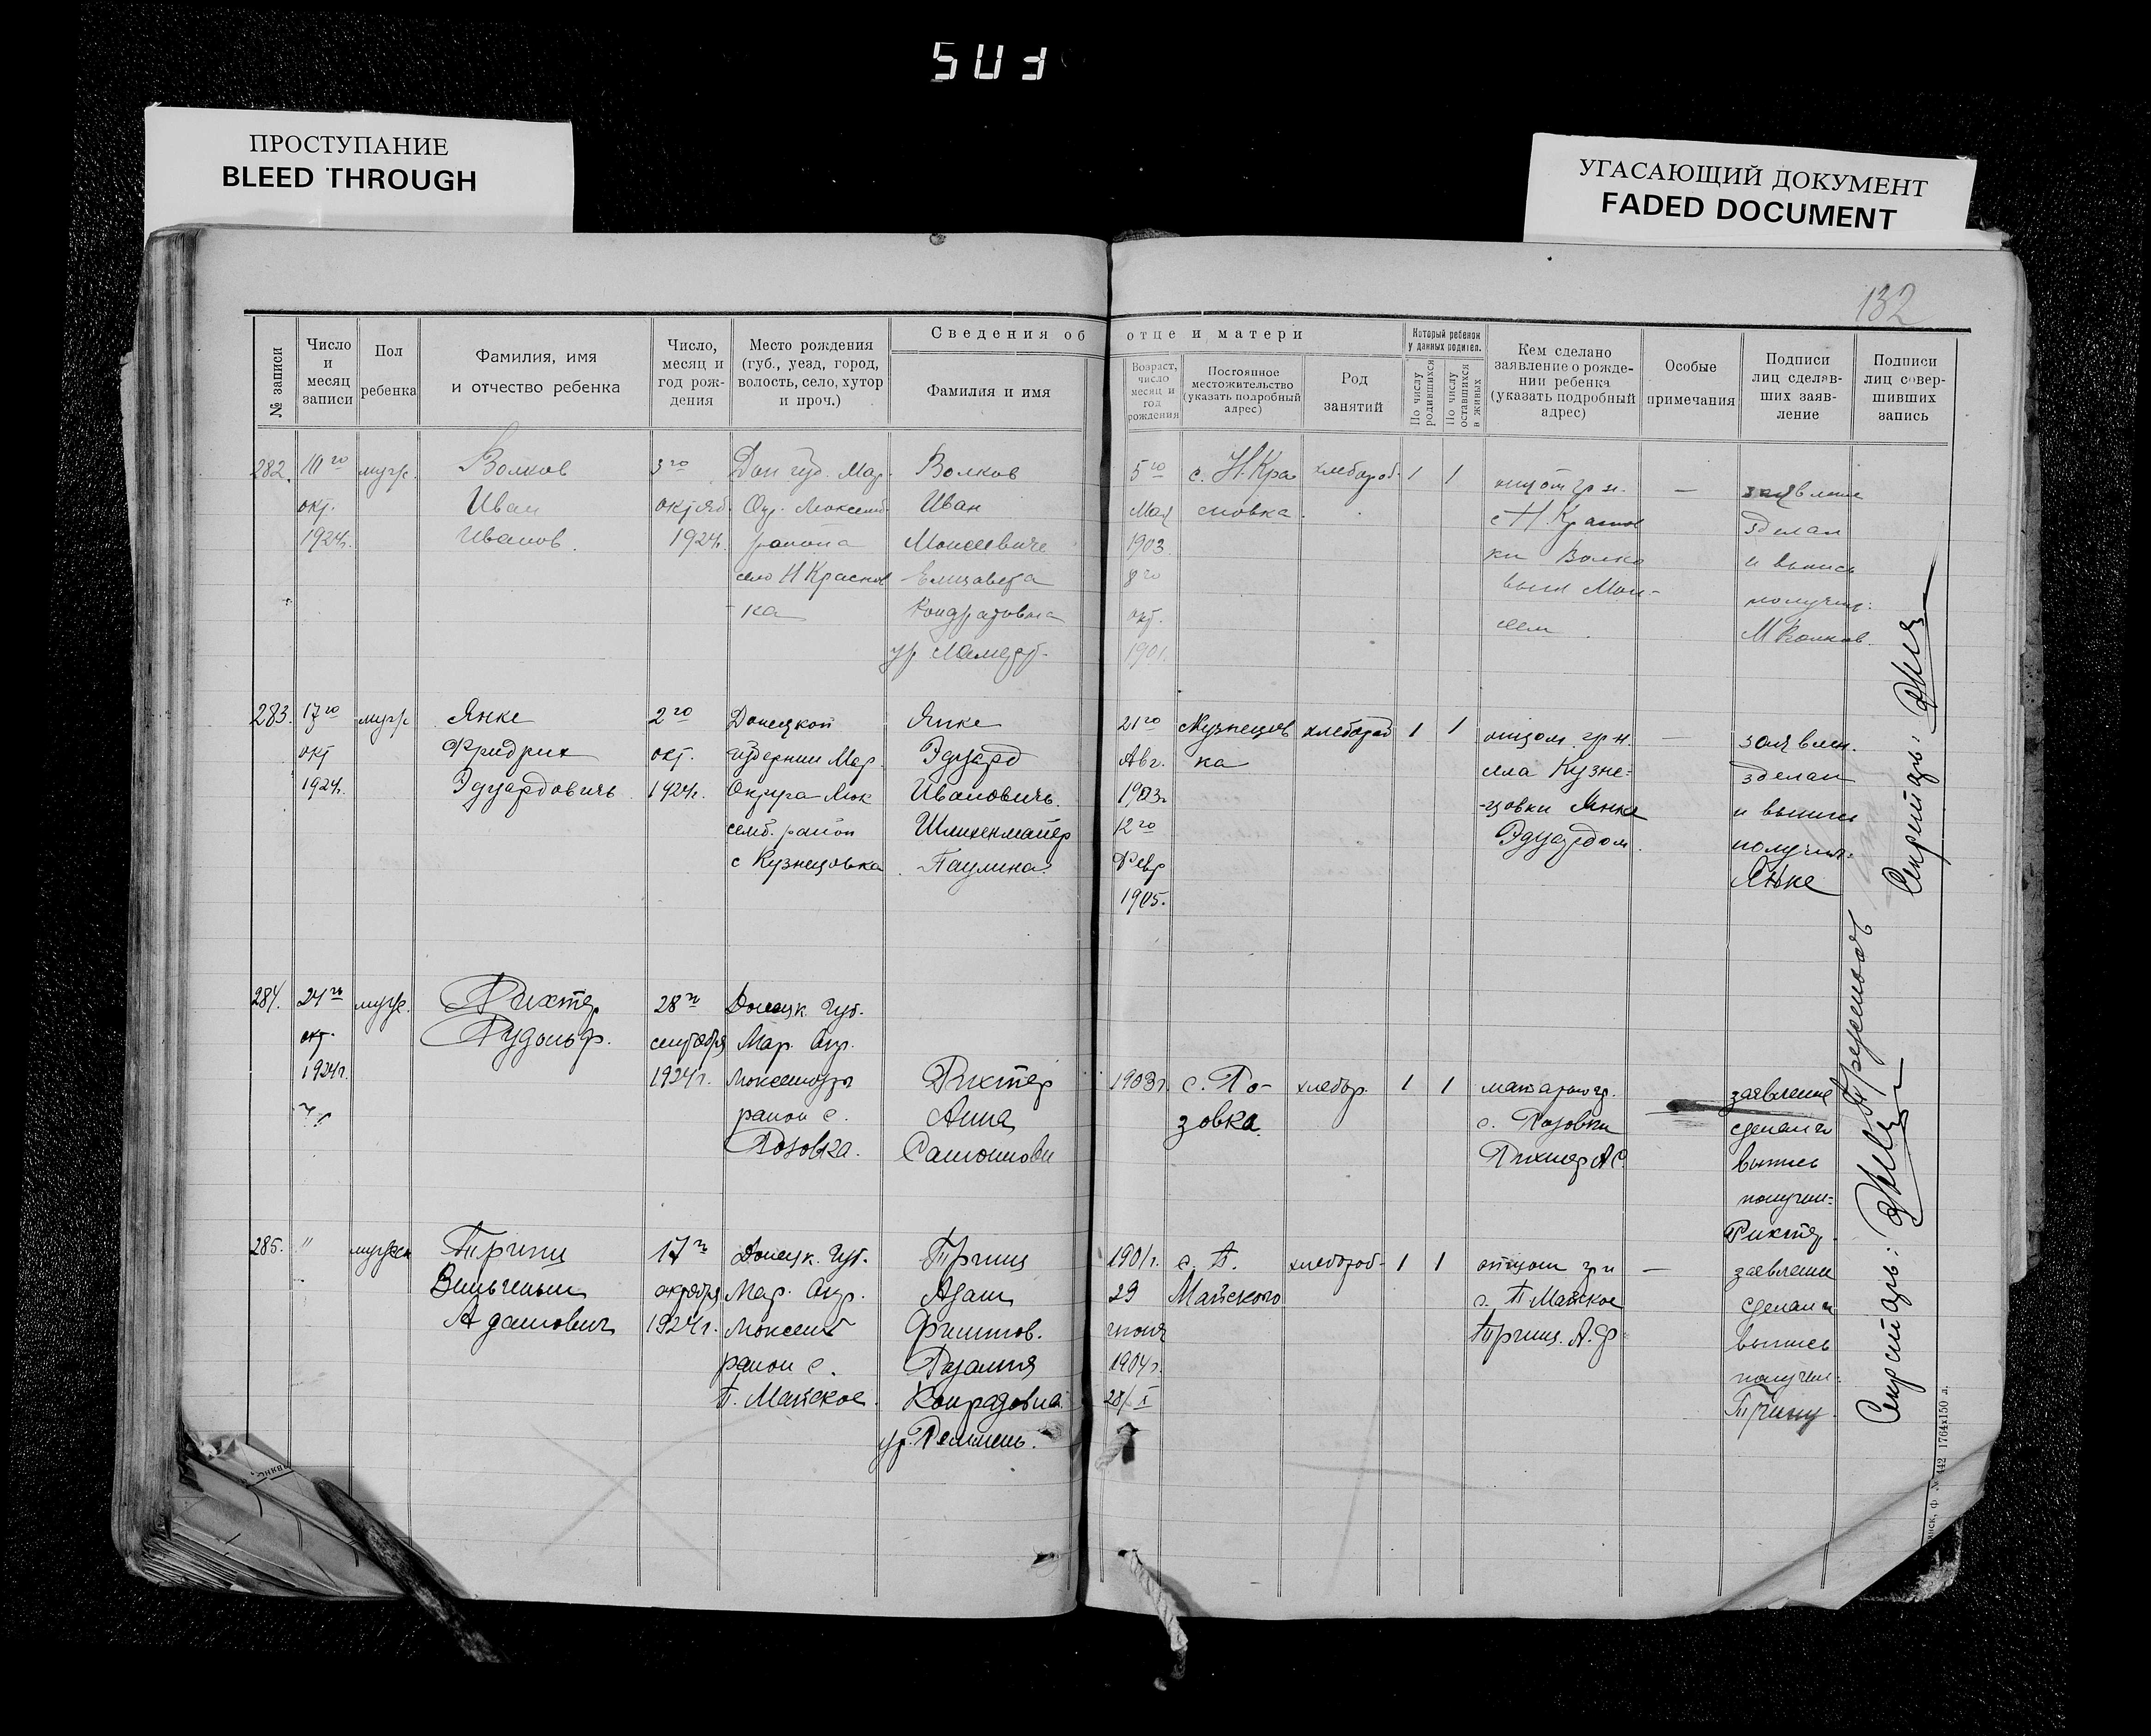 ПРОСТУПАНИЕ
BLEED THROUGH
УГАСАЮЩИЙ ДОКУМЕНТ
FADED DOCUMENT
132
Сведения об отце и матери
№ записи
Число и месяц записи
Пол ребенка
Фамилия, имя и отчество ребенка
Число, месяц и год рождения
Место рождения (губ., уезд, город, волость, село, хутор и проч.)
Фамилия и имя
Возраст, число месяц и год рождения
Постоянное местожительство (указать подробный адрес)
Род занятий
Который ребенок у данных родител.
По числу родившихся
По числу оставшихся в живых
Кем сделано заявление о рождении ребенка (указать подробный адрес)
Особые примечания
Подписи лиц сделавших заявление
Подписи лиц совершивших запись
282. 10го муж. Волков 3го Дон губ. Мар. Волков 5го с. Н. Кра хлебороб. 1 1 отцом гр н. — заявление
окт. Иван октяб. Окр. Люксемб. Иван Мая сновка. с Н. Краснов зделал
1924г. Иванов. 1924г. района Моисеевиче 1903. ки Волко и выпись
село Н Краснов Елизавета 8го вым Мои- получил:
ка Кондратовна окт. сеем М Волков.
ур 1901.
283. 17го муж Янке 2го Донецкой Янке 21го Кузнецов хлебороб 1 1 отцом гр н. — заявлен.
окт Фридрих окт. губернии Мар. Эдуард Авг. ка села Кузне- зделал
1924г. Эдуардовичь 1924г. Округа Люк Ивановичь. 1903г -цовки Янке и выпись
семб. район Шлихенмайер 12го Эдуардом. получил:
с Кузнецовка Паулина. Февр Янке
1905.
284. 24го муж. Рихтер 28го Донецк. Губ.
окт. Рудольф. сентября Мар. Окр.
1924г. 1924г. Рихтер 1903г. с. Ро- хлебор. 1 1 матерью гр. заявление
район с. Анна зовка. с. Розовки сделал и
Розовка. Рихтер А С. выпись
получил:
Рихтер.
285. " мужск 17го Донецк. Губ. 1901г. с. П. хлебороб. 1 1 отцом гр н — заявление
октября Мар. Окр. Адам 29 Майского с. П Майское сделал и
Адамович 1924г. Люксемб июня А. Ф. выпись
район с. Розалия 1904г. получил:
П. Майское. Конрадовна 28/I
ур.
Секретарь:
Секретарь:
442 1764х150 л.